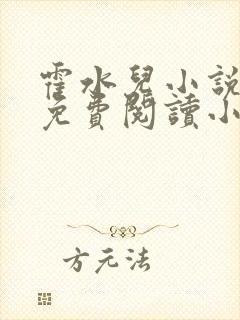 霍水兒小說
免費閱讀小
方元法